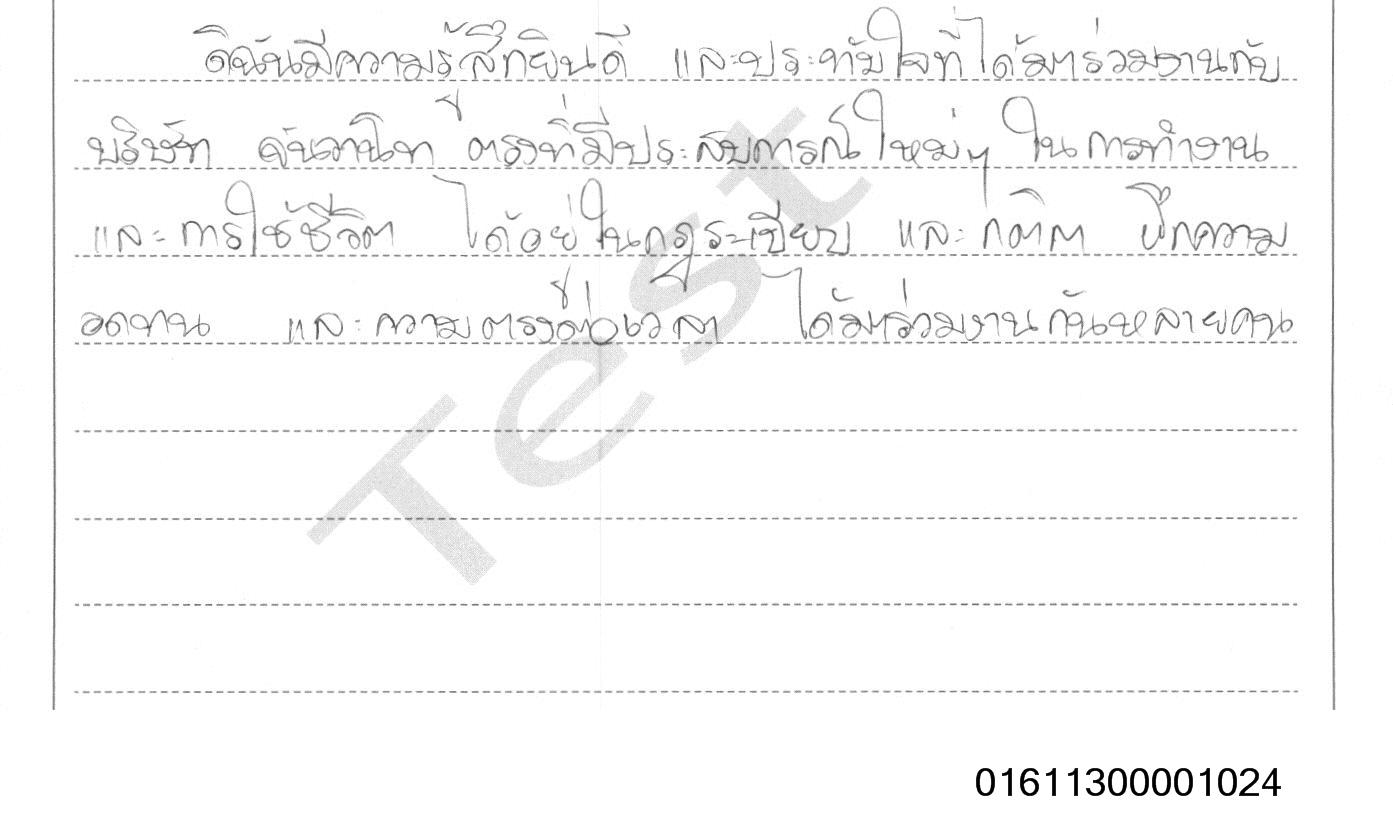 ดิฉันมีความรู้สึกยินดี และประทับใจที่ได้มาร่วมงานกับ
บริษัท ตรงที่มีประสบการณ์ใหม่ๆ ในการทำงาน
และการใช้ชีวิต ได้อยู่ในกฎระเบียบ และกติกา ฝึกความ
อดทน และความตรงต่อเวลา ได้มาร่วมงานกันหลายคน
Test
01611300001024